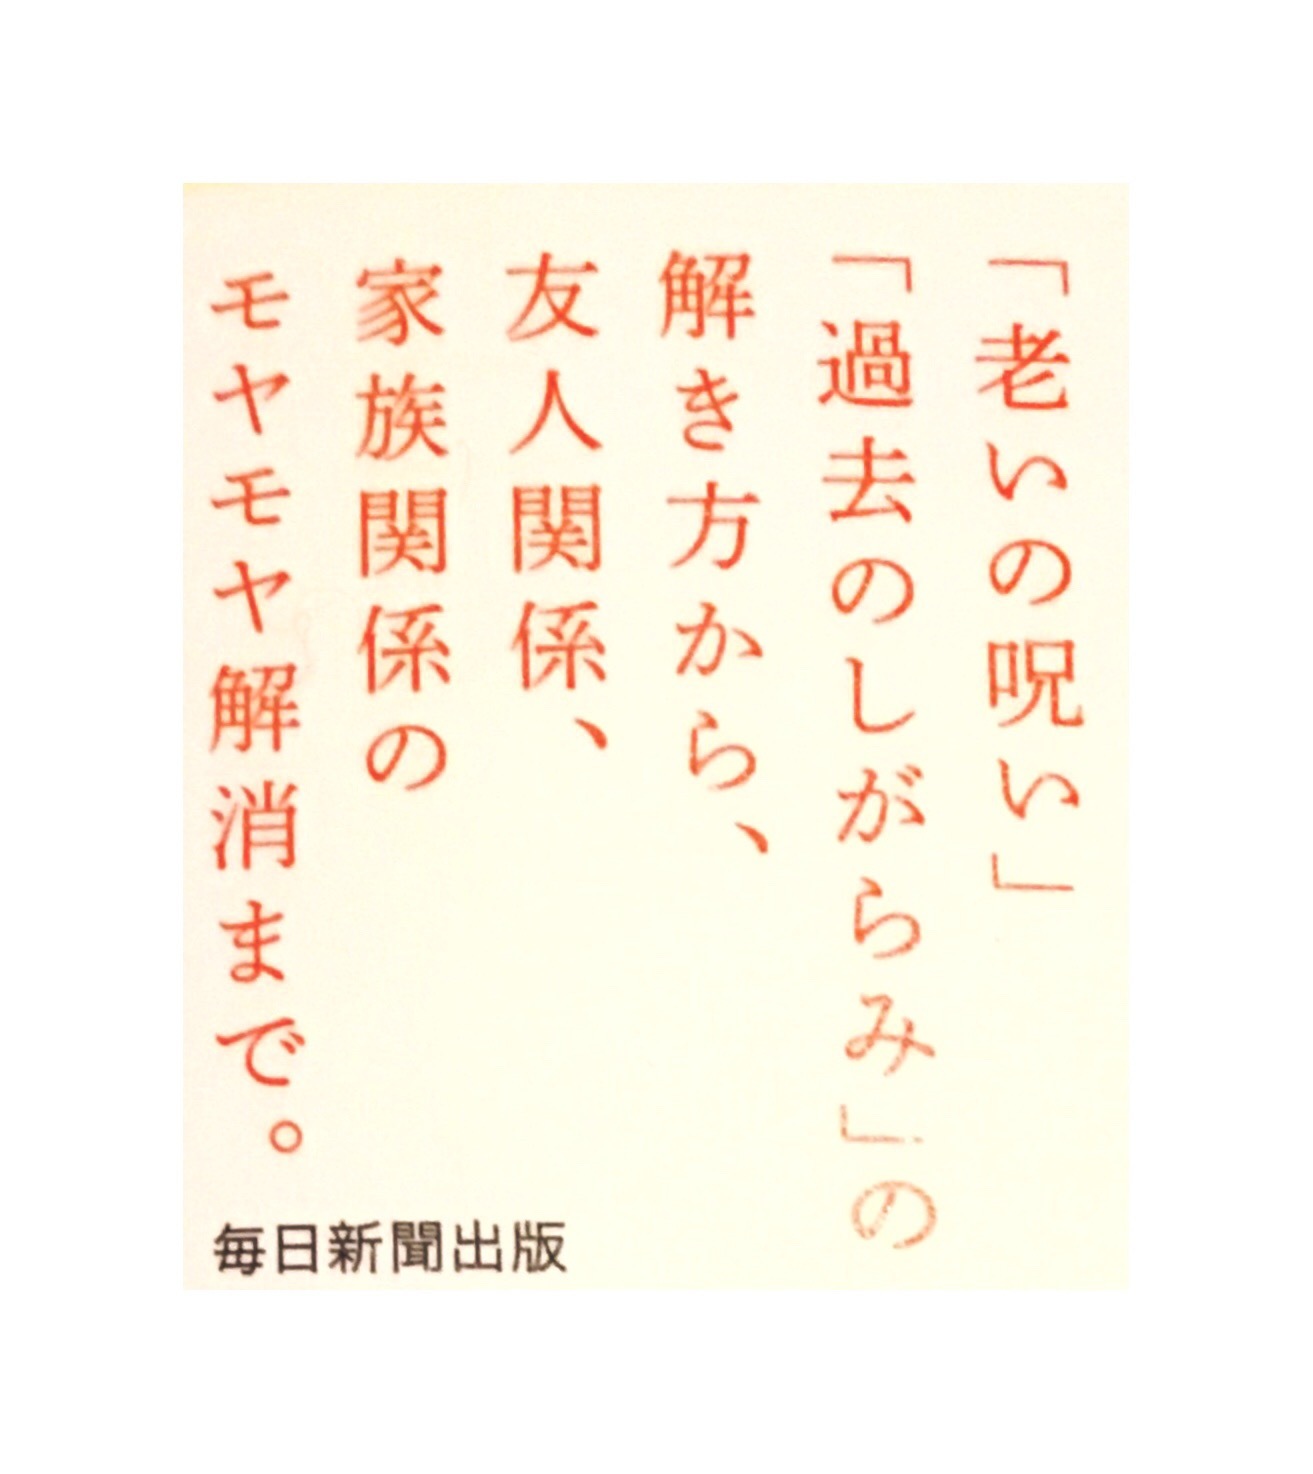 「老いの呪い」
「過去のしがらみ」の
解き方から、
友人関係、
家族関係の
モヤモヤ解消まで。
毎日新聞出版